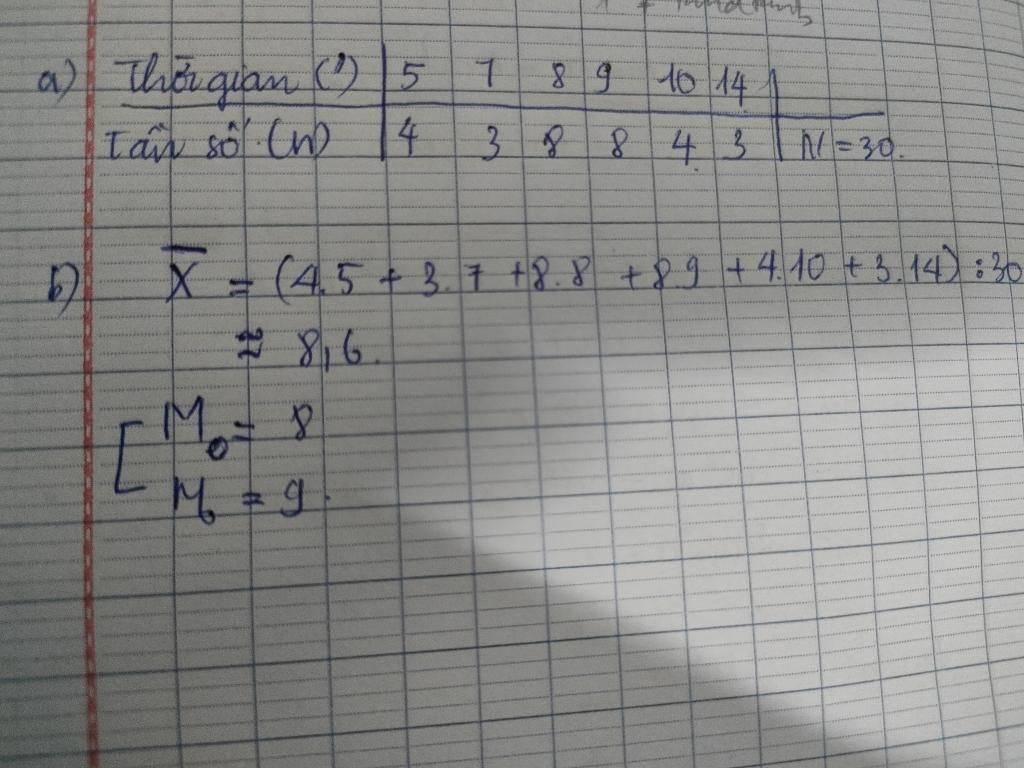 a) Thời gian (') 5 7 8 9 10 14
Tần số (n) 4 3 8 8 4 3 N = 30.
b) X̅ = (4.5 + 3.7 + 8.8 + 8.9 + 4.10 + 3.14) : 30
≈ 8,6.
M₀ = 8
M₀ = 9.